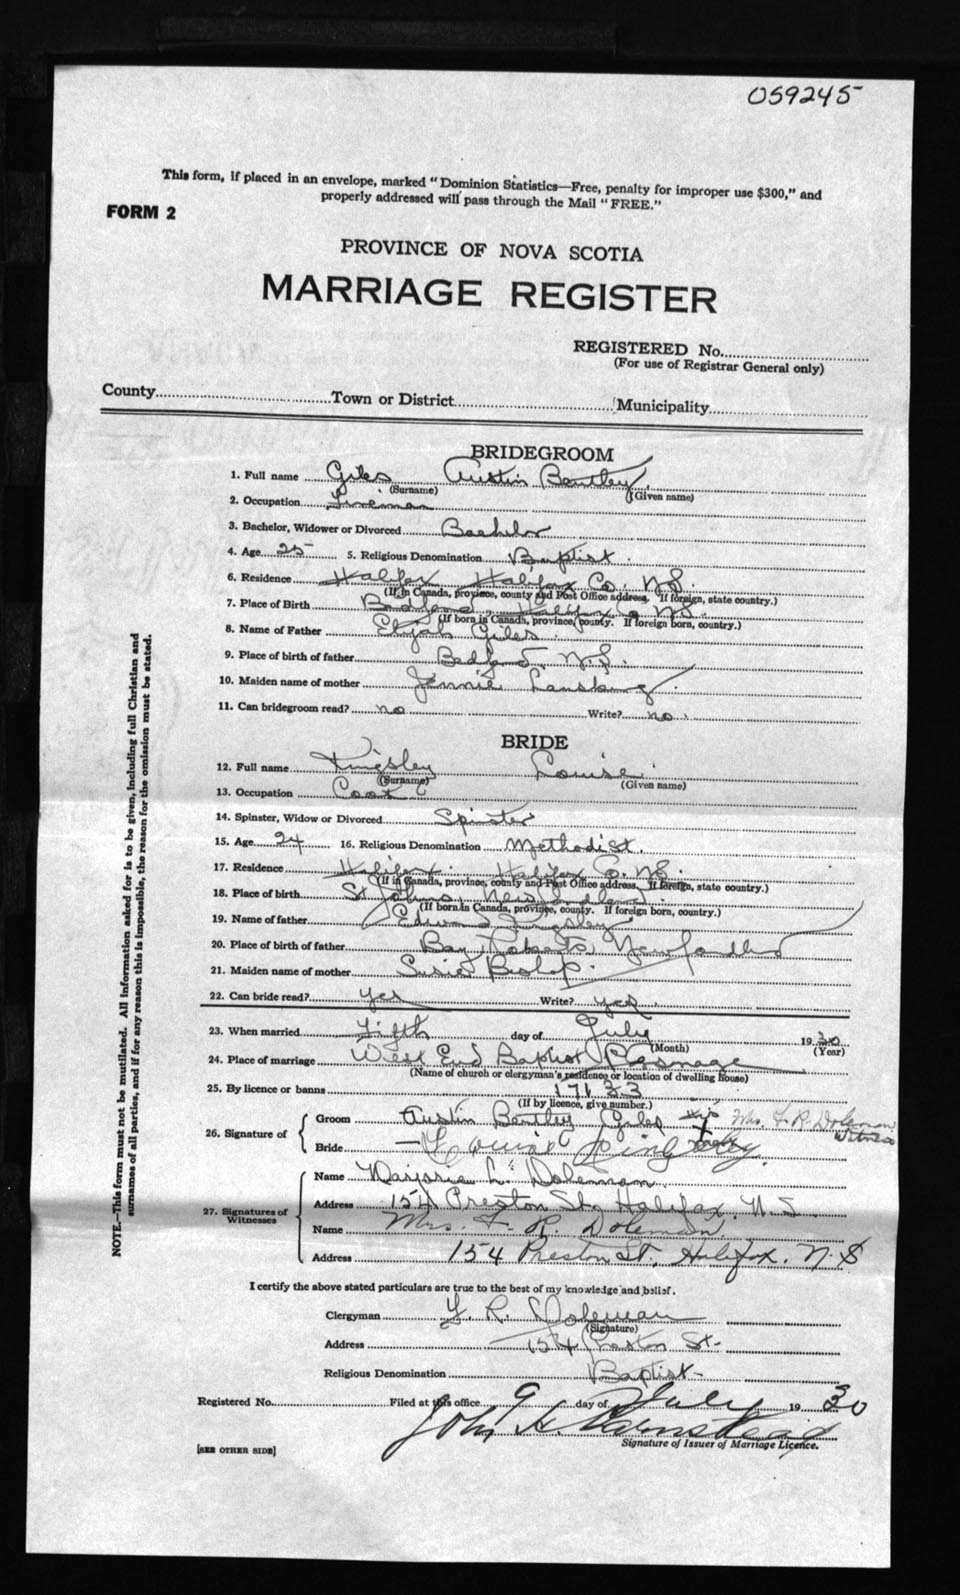 059245
This form, if placed in an envelope, marked "Dominion Statistics—Free, penalty for improper use $300," and
properly addressed will pass through the Mail "FREE."
FORM 2
PROVINCE OF NOVA SCOTIA
MARRIAGE REGISTER
REGISTERED No.
(For use of Registrar General only)
County Town or District Municipality
BRIDEGROOM
1. Full name Giles Austin Bentley
(Surname) (Given name)
2. Occupation Lineman
3. Bachelor, Widower or Divorced Bachelor
4. Age 25 5. Religious Denomination Baptist
6. Residence Halifax Halifax Co. N.S.
(If in Canada, province, county and Post Office address. If foreign, state country.)
7. Place of Birth Bedford, Halifax Co N.S.
(If born in Canada, province, county. If foreign born, country.)
8. Name of Father Elijah Giles
9. Place of birth of father Bedford, N.S.
10. Maiden name of mother Jennie
11. Can bridegroom read? no Write? no
BRIDE
12. Full name Kingsley Louise
(Surname) (Given name)
13. Occupation Cook
14. Spinster, Widow or Divorced Spinster
15. Age 24 16. Religious Denomination Methodist.
17. Residence Halifax Halifax Co. N.S.
(If in Canada, province, county and Post Office address. If foreign, state country.)
18. Place of birth St Johns, Newfoundland
(If born in Canada, province, county. If foreign born, country.)
19. Name of father Edward Kingsley
20. Place of birth of father Bay Roberts,
21. Maiden name of mother Susie Bishop.
22. Can bride read? yes Write? yes
23. When married Fifth day of July 1930
(Month) (Year)
24. Place of marriage West End Baptist Parsonage
(Name of church or clergyman's residence or location of dwelling house)
25. By licence or banns 17133
(If by licence, give number.)
26. Signature of Groom Austin Bentley Giles his X mark Mrs. F R Doleman Witness
Bride Louise Kingsley.
27. Signatures of Witnesses
Name Marjorie L. Doleman
Address 154 Preston St, Halifax, N.S
Name Mrs. F. R. Doleman
Address 154 Preston St. Halifax. N.S
I certify the above stated particulars are true to the best of my knowledge and belief.
Clergyman F. R. Doleman
(Signature)
Address 154 Preston St-
Religious Denomination Baptist
Registered No. Filed at this office 9 day of July 1930
John H. Barnstead
Signature of Issuer of Marriage Licence.
[SEE OTHER SIDE]
NOTE.—This form must not be mutilated. All information asked for is to be given, including full Christian and
surnames of all parties, and if for any reason this is impossible, the reason for the omission must be stated.